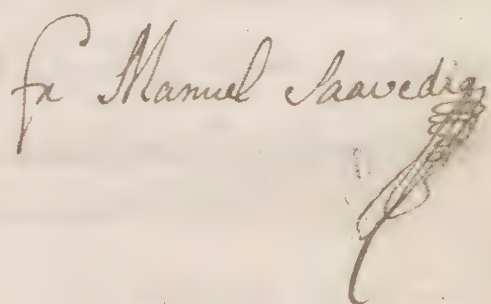 fr Manuel Saavedra